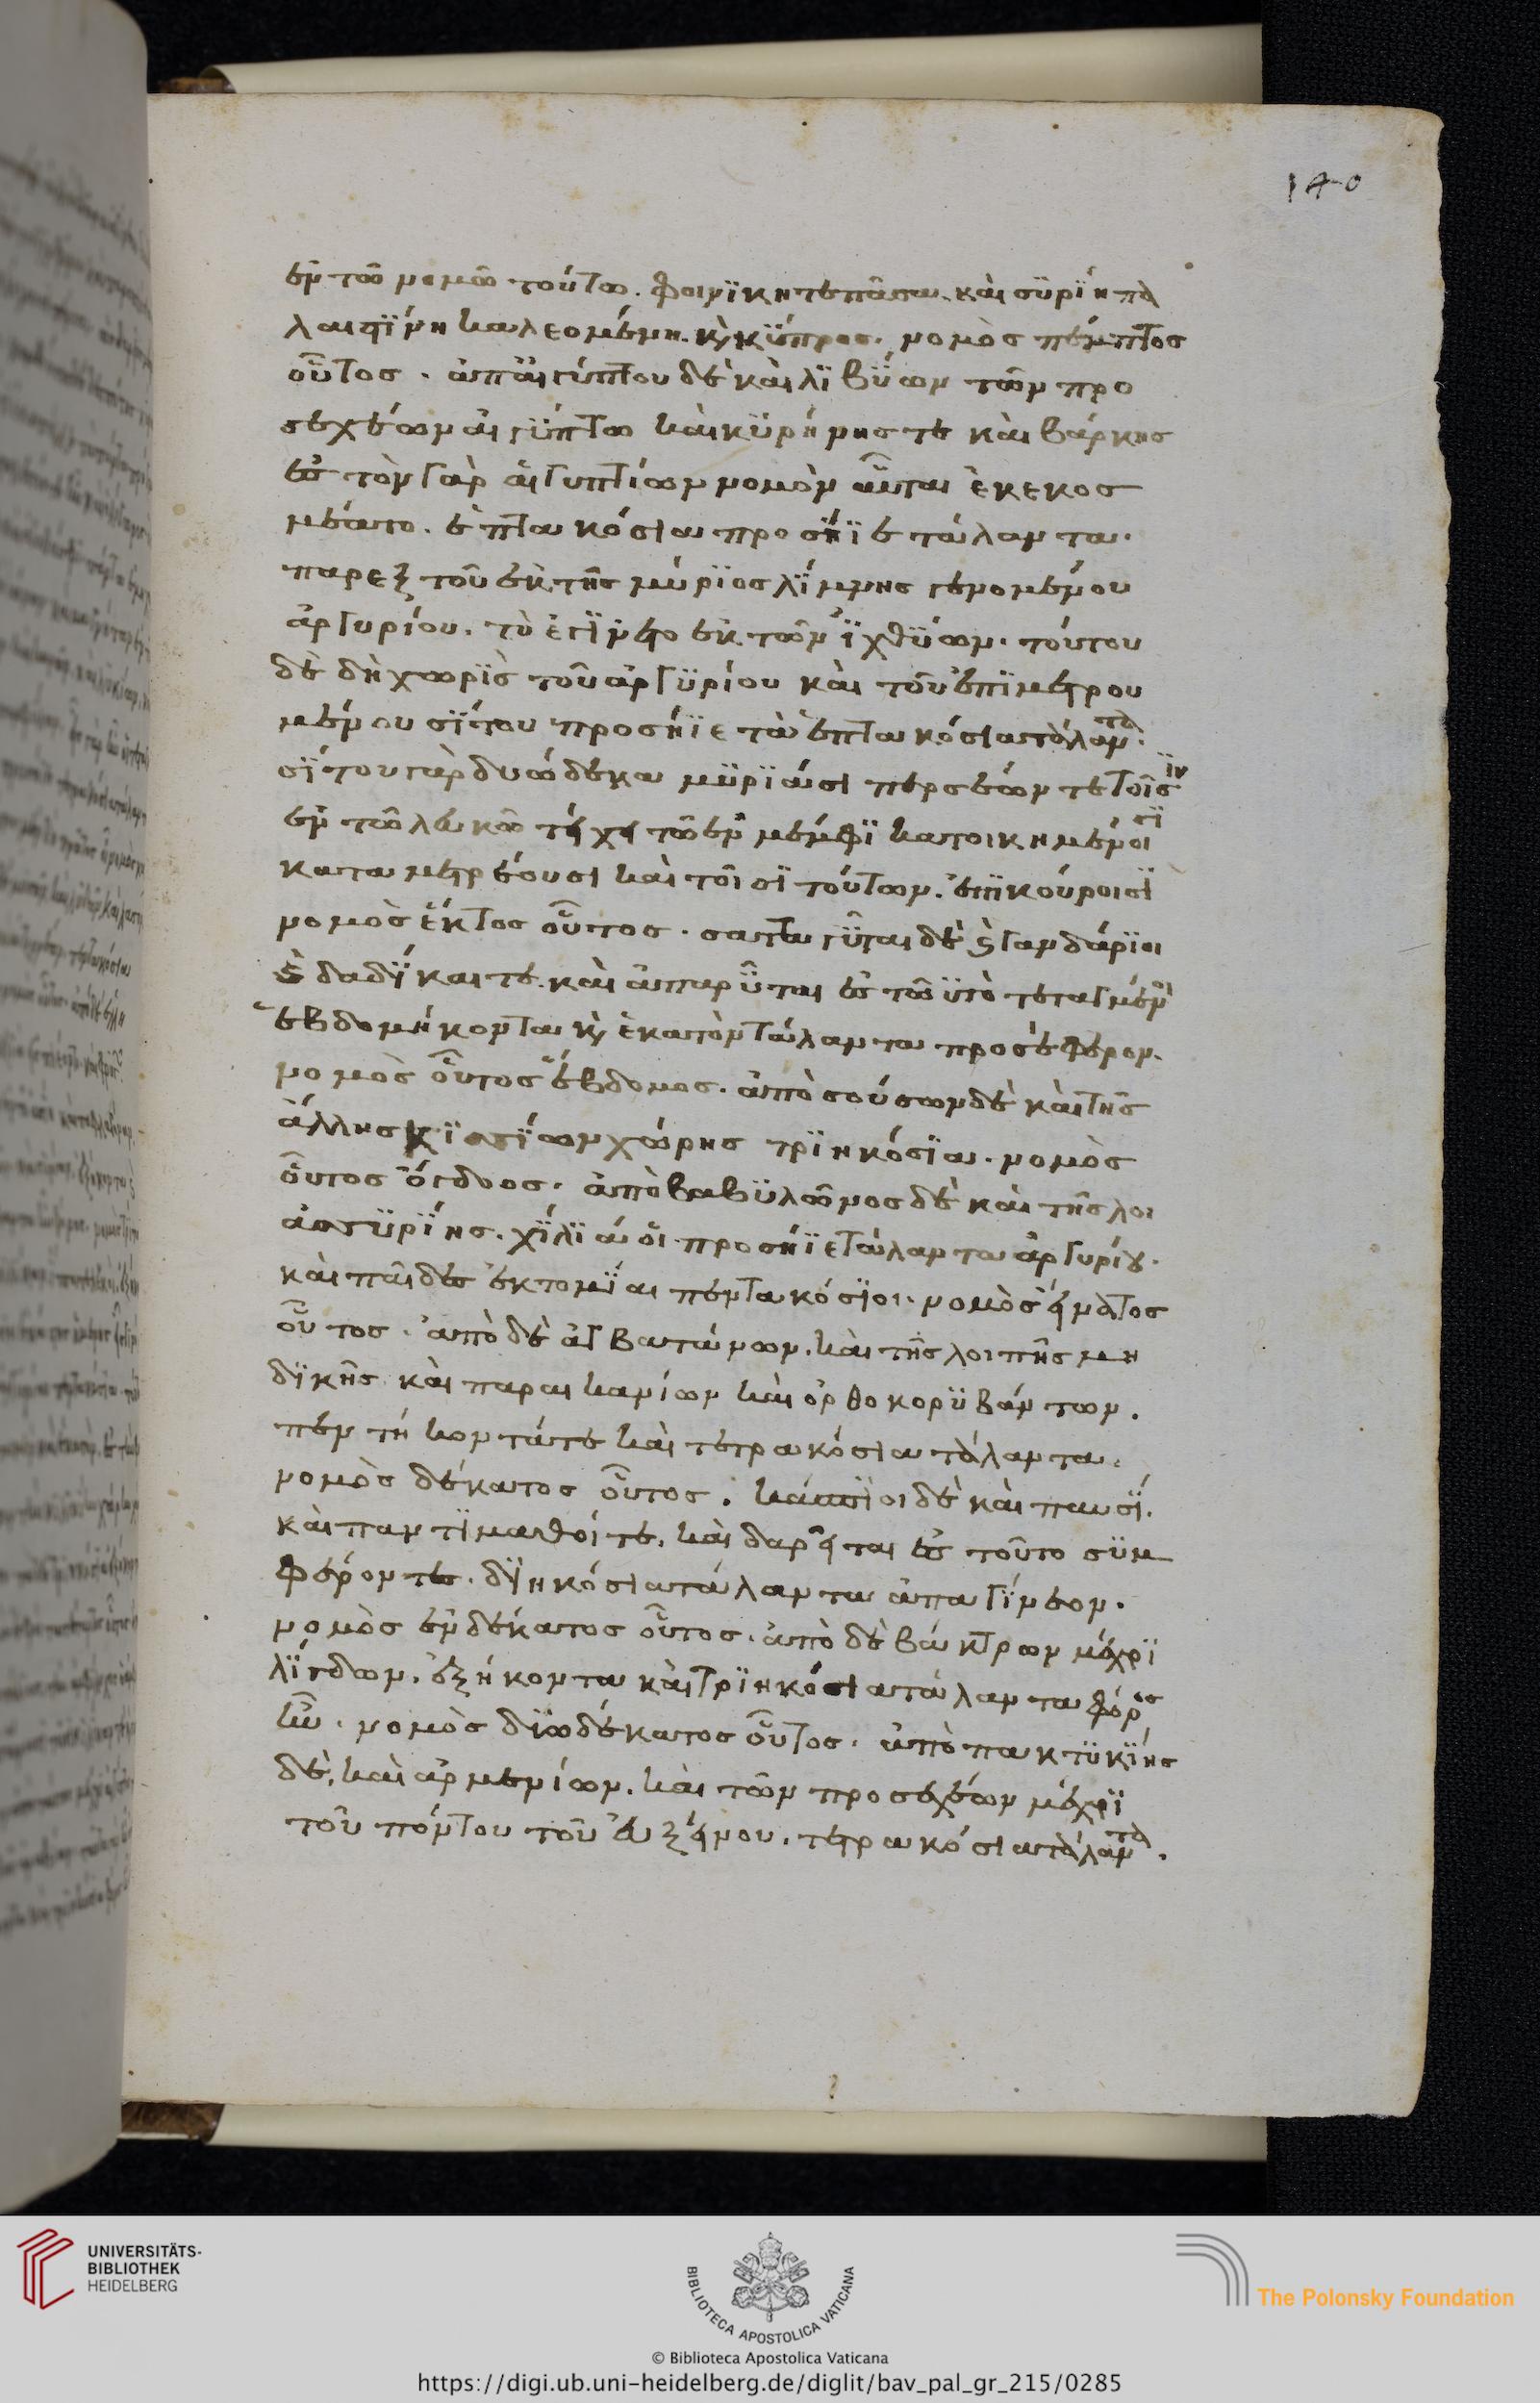 140
ἐν τῶ νομῶ τούτω. φοινΐκη τε πᾶσα. καὶ συρΐη πα
λαιστΐνη καλεομένη. κὶ κΰπρος. νομὸς πέμπτος
οὗτος. ἀπ αἰγύπτου δὲ καὶ λϊβΰων τῶν προ
σεχέων αἰγΰπτω καὶ κϋρήνης τε καὶ βάρκης
ἐς τὸν γὰρ αἰγυπτίων νομὸν αὗται ἐκεκοσ
μέατο. ἑπτακόσια προσήϊε τάλαντα.
παρεξ τοῦ ἐκ τῆς μύρϊος λΐμνης γενομένου
ἀργυρίου. τὸ ἐγΐνετο ἐκ τῶν ἰχθΰων. τούτου
δὲ δὴ χωρϊς τοῦ ἀργϋρίου καὶ τοῦ ἐπϊμετρου
μένου σΐτου προσήϊε τὰ ἑπτακόσια τάλαντα.
σΐτου γὰρ δυώδεκα μϋρϊάσι περσέων τε τοῖσιν
ἐν τῶ λευκῶ τείχει τῶ ἐν μέμφϊ κατοικημένοισι
καταμετρέουσι καὶ τοῖσϊ τούτων. ἐπϊκούροισϊ
νομὸς ἕκτος οὗτος. σατταγῦται δὲ κὶ γανδάρϊοι
κὶ δαδΐκαι τε. καὶ ἀπαρῦται ἐς τῶϋτὸ τεταγμένοι
ἑβδομήκοντα κὶ ἑκατὸν τάλαντα προσέφερον.
νομὸς οὗτος ἕβδομος. ἀπὸ σούσων δὲ καὶ τῆς
ἄλλης κϊσσΐων χώρης τρϊηκόσϊα. νομὸς
οὗτος ὄγδοος. ἀπὸ βαβϋλῶνος δὲ καὶ τῆς λοι
ἀσσϋρΐης. χΐλϊά οἱ προσήϊε τάλαντα ἀργυρίου.
καὶ παῖδες ἐκτομΐαι πεντακόσϊοι. νομὸς εἴνατος
οὗτος. ἀπὸ δὲ ἀγβατάνων. καὶ τῆς λοιπῆς μη
δϊκῆς καὶ παραικανίων καὶ ὀρθοκορϋβάντων.
πεντήκοντά τε καὶ τετρακόσια τάλαντα.
νομὸς δέκατος οὗτος. κάσπϊοι δὲ καὶ παυσΐ.
καὶ παντΐμαθοί τε. καὶ δαρεῖται ἐς τοῦτο σϋμ
φέροντες. δϊηκόσια τάλαντα ἀπαγΐνεον.
νομὸς ἑνδέκατος οὗτος. ἀπὸ δὲ βάκτρων μέχρϊ
λΐγδων. ἑξήκοντα καὶ τρϊηκόσια τάλαντα φόρος
ἦν. νομὸς δϋωδέκατος οὗτος. ἀπὸ πακτϋϊκῆς
δὲ, καὶ ἀρμενίων. καὶ τῶν προσεχέων μέχρϊ
τοῦ πόντου τοῦ ἐυξείνου. τετρακόσια τάλαντα.
UNIVERSITÄTS-
BIBLIOTHEK
HEIDELBERG
BIBLIOTECA APOSTOLICA VATICANA
The Polonsky Foundation
© Biblioteca Apostolica Vaticana
https://digi.ub.uni-heidelberg.de/diglit/bav_pal_gr_215/0285